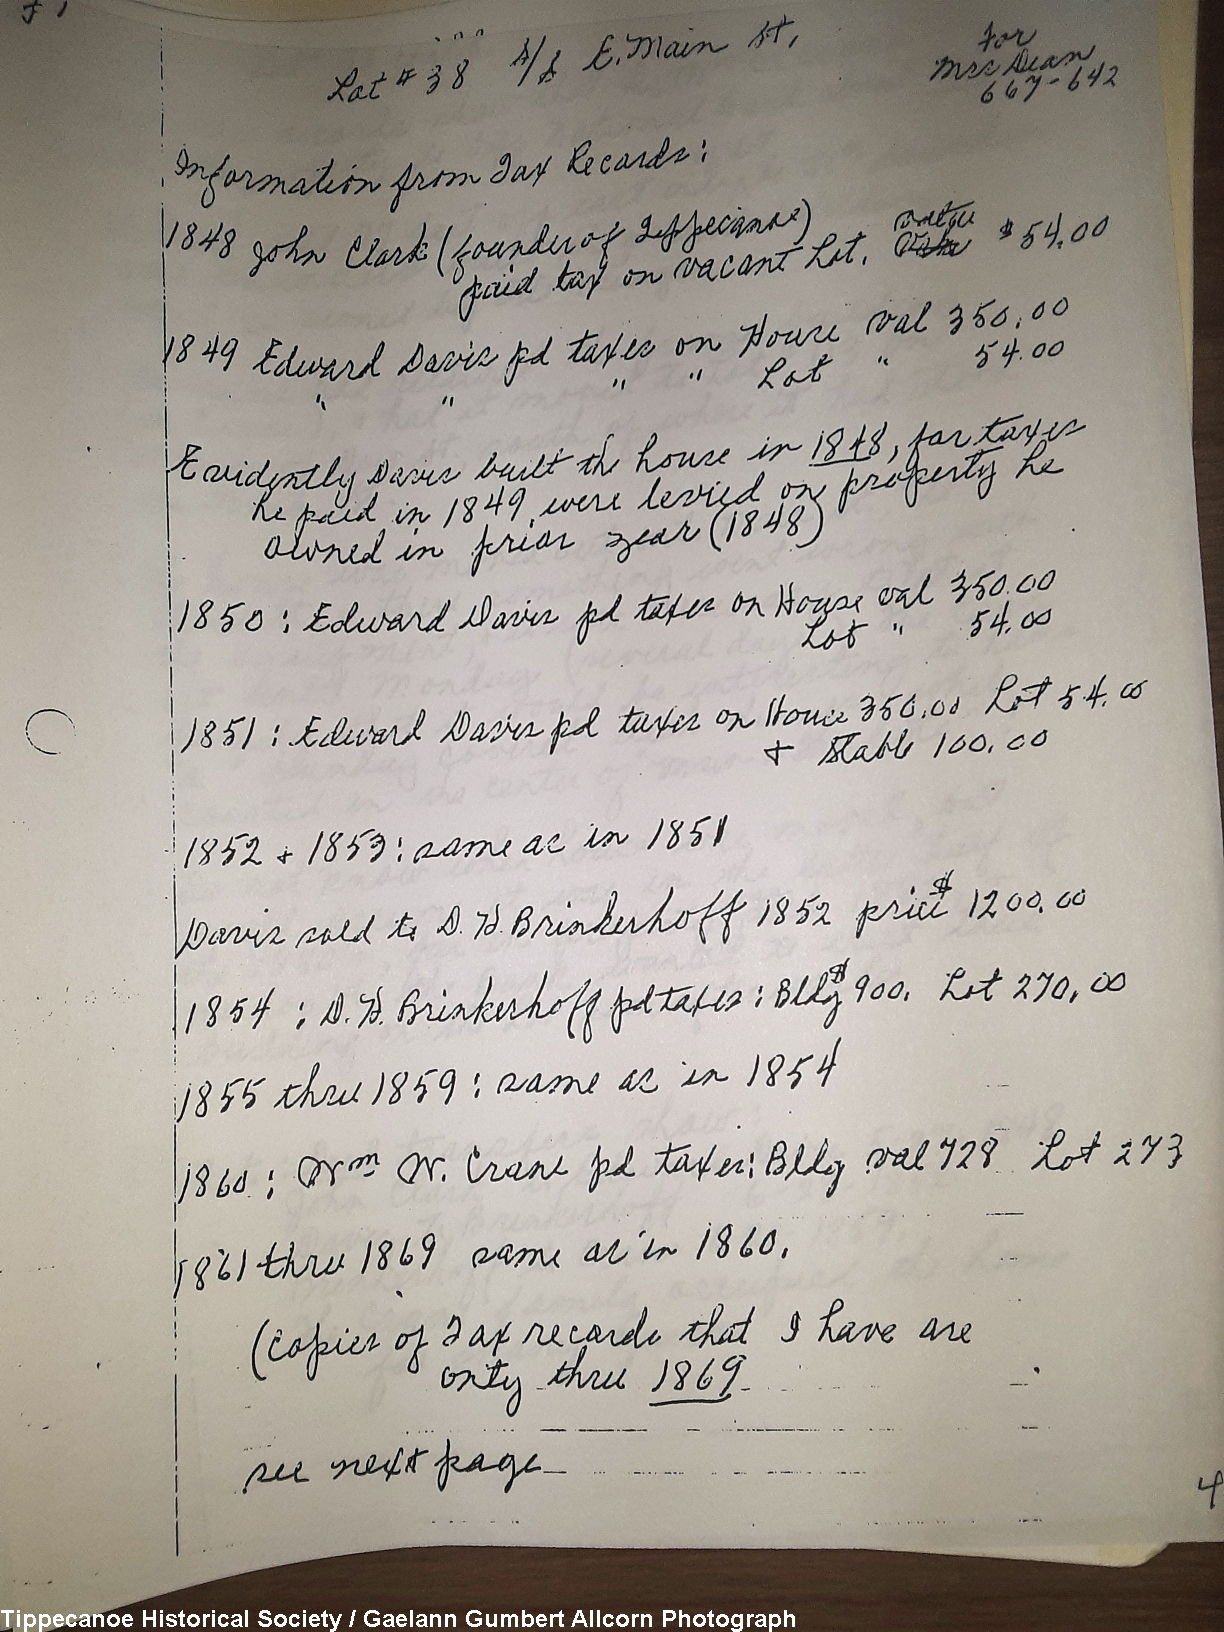 Lot # 38 S/S E. Main St.
For
Mrs Dean
667-642
Information from Tax Records:
1848 John Clark (founder of Tippecanoe)
paid tax on vacant Lot. value $54.00
1849 Edward Davis pd taxes on House val 350.00
" " " " Lot " 54.00
Evidently Davis built the house in 1848, for taxes
he paid in 1849 were levied on property he
owned in prior year (1848)
1850: Edward Davis pd taxes on House val 350.00
Lot " 54.00
1851: Edward Davis pd taxes on House 350.00 Lot 54.00
+ Stable 100.00
1852 + 1853: same as in 1851
Davis sold to D. H. Brinkerhoff 1852 price $1200.00
1854: D. H. Brinkerhoff pd taxes: Bldg $900. Lot 270.00
1855 thru 1859: same as in 1854
1860: Wm W. Crane pd taxes: Bldg val 728 Lot 273
1861 thru 1869 same as in 1860.
(Copies of Tax records that I have are
only thru 1869
see next page
4
Tippecanoe Historical Society / Gaelann Gumbert Allcorn Photograph